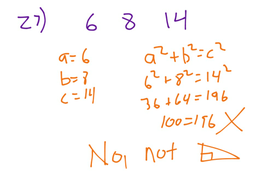 27) 6 8 14
a=6
b=8
c=14
a²+b²=c²
6²+8²=14²
36+64=196
100=196 X
No, not